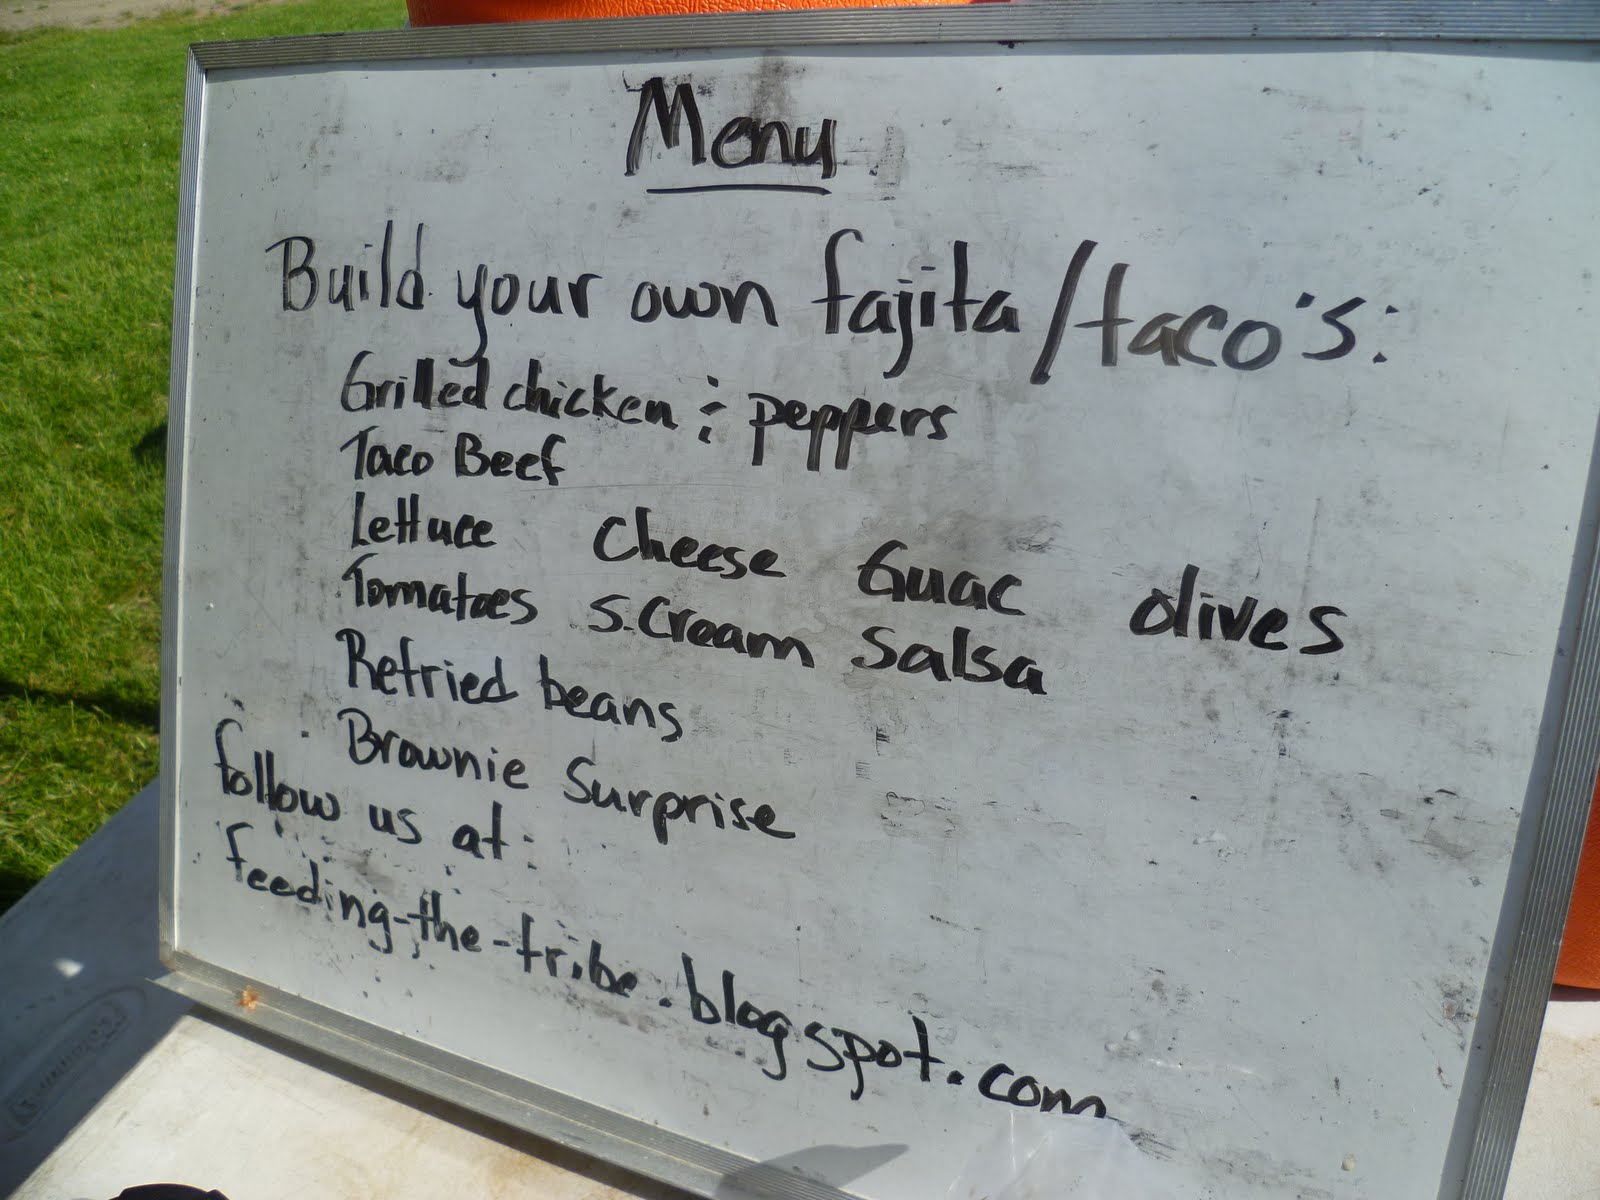 Menu
Build your own fajita/taco's:
Grilled chicken & peppers
Taco Beef
Lettuce Cheese Guac olives
Tomatoes S.Cream Salsa
Refried beans
Brownie Surprise
follow us at:
feeding-the-tribe.blogspot.com